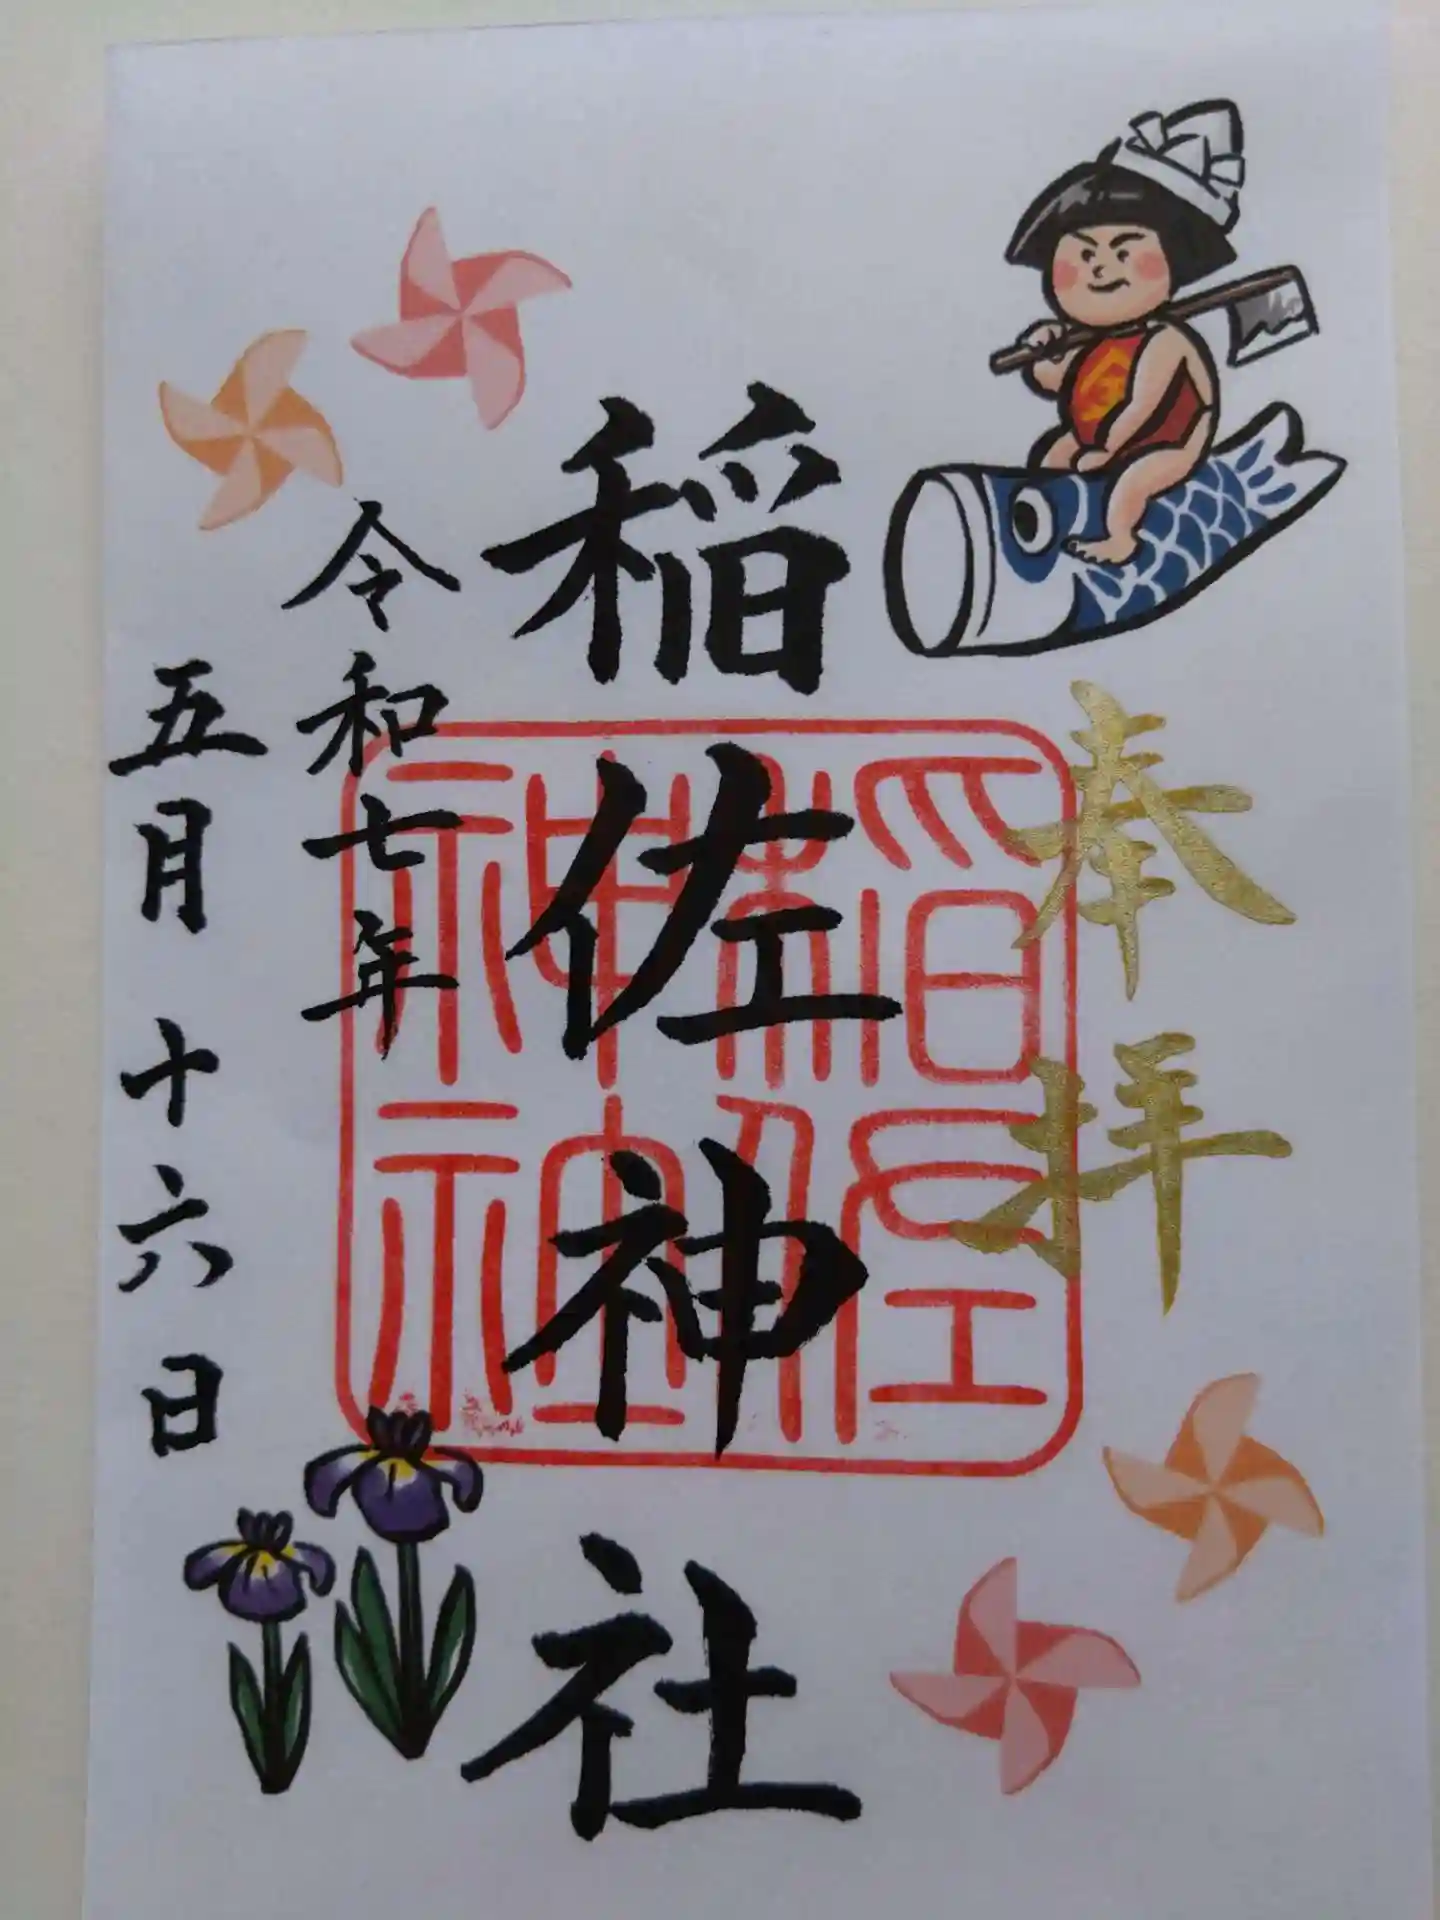 奉拝
稲佐神社
稲佐
神社
令和七年
五月十六日
金